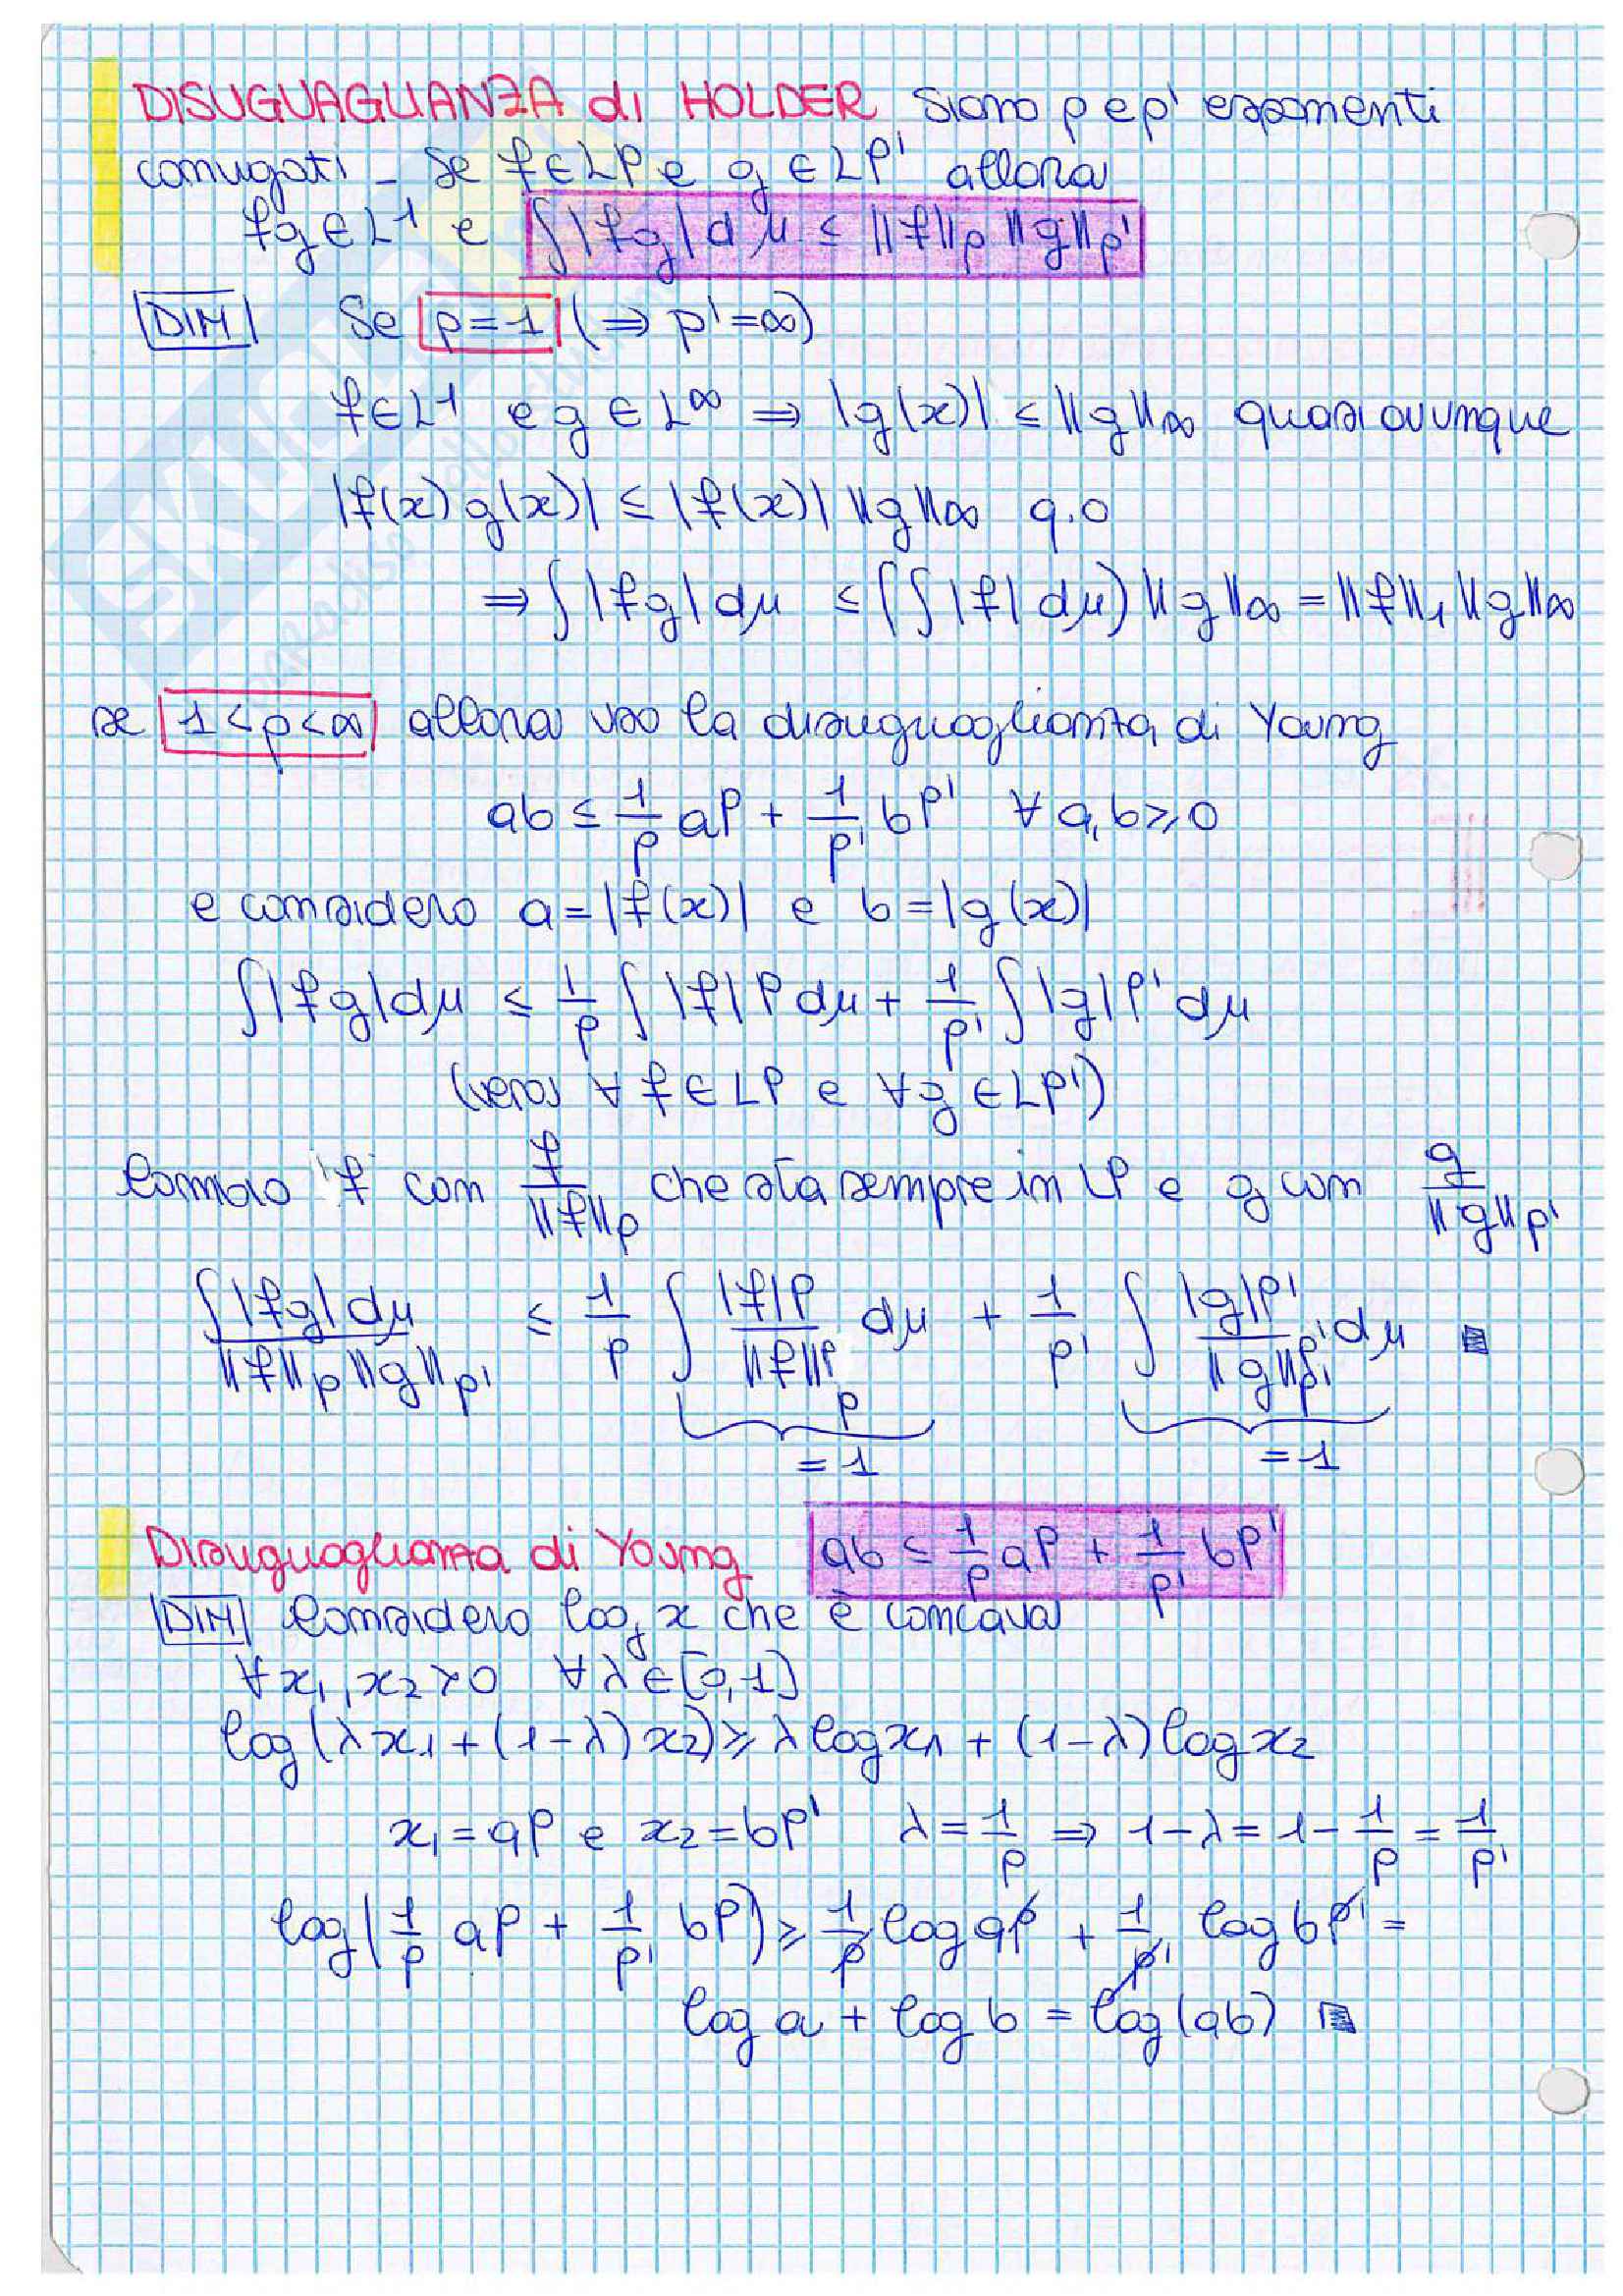 DISUGUAGLIANZA di HOLDER Siano p e p' esponenti
coniugati - Se f ∈ Lᵖ e g ∈ Lᵖ' allora
fg ∈ L¹ e ∫|fg|dμ ≤ ||f||ₚ ||g||ₚ'
DIM Se p=1 (⇒ p'=∞)
f ∈ L¹ e g ∈ L^∞ ⇒ |g(x)| ≤ ||g||∞ quasi ovunque
|f(x)g(x)| ≤ |f(x)| ||g||∞ q.o
⇒ ∫|fg|dμ ≤ (∫|f|dμ) ||g||∞ = ||f||₁ ||g||∞
se 1<p<∞ allora uso la disuguaglianza di Young
ab ≤ 1/p aᵖ + 1/p' bᵖ' ∀ a,b ≥ 0
e considero a=|f(x)| e b=|g(x)|
∫|fg|dμ ≤ 1/p ∫|f|ᵖ dμ + 1/p' ∫|g|ᵖ' dμ
(vera ∀ f ∈ Lᵖ e ∀ g ∈ Lᵖ')
Cambio f con f/||f||ₚ che sta sempre in Lᵖ e g con g/||g||ₚ'
∫|fg|dμ / ||f||ₚ||g||ₚ' ≤ 1/p ∫ |f|ᵖ/||f||ₚᵖ dμ + 1/p' ∫ |g|ᵖ'/||g||ₚ'ᵖ' dμ
=1 =1
Disuguaglianza di Young ab ≤ 1/p aᵖ + 1/p' bᵖ'
DIM Considero log x che è concava
∀ x₁, x₂ > 0 ∀ λ ∈ [0,1]
log(λx₁ + (1-λ)x₂) ≥ λ log x₁ + (1-λ) log x₂
x₁ = aᵖ e x₂ = bᵖ' λ = 1/p ⇒ 1-λ = 1 - 1/p = 1/p'
log(1/p aᵖ + 1/p' bᵖ) ≥ 1/p log aᵖ + 1/p' log bᵖ' =
log a + log b = log(ab)